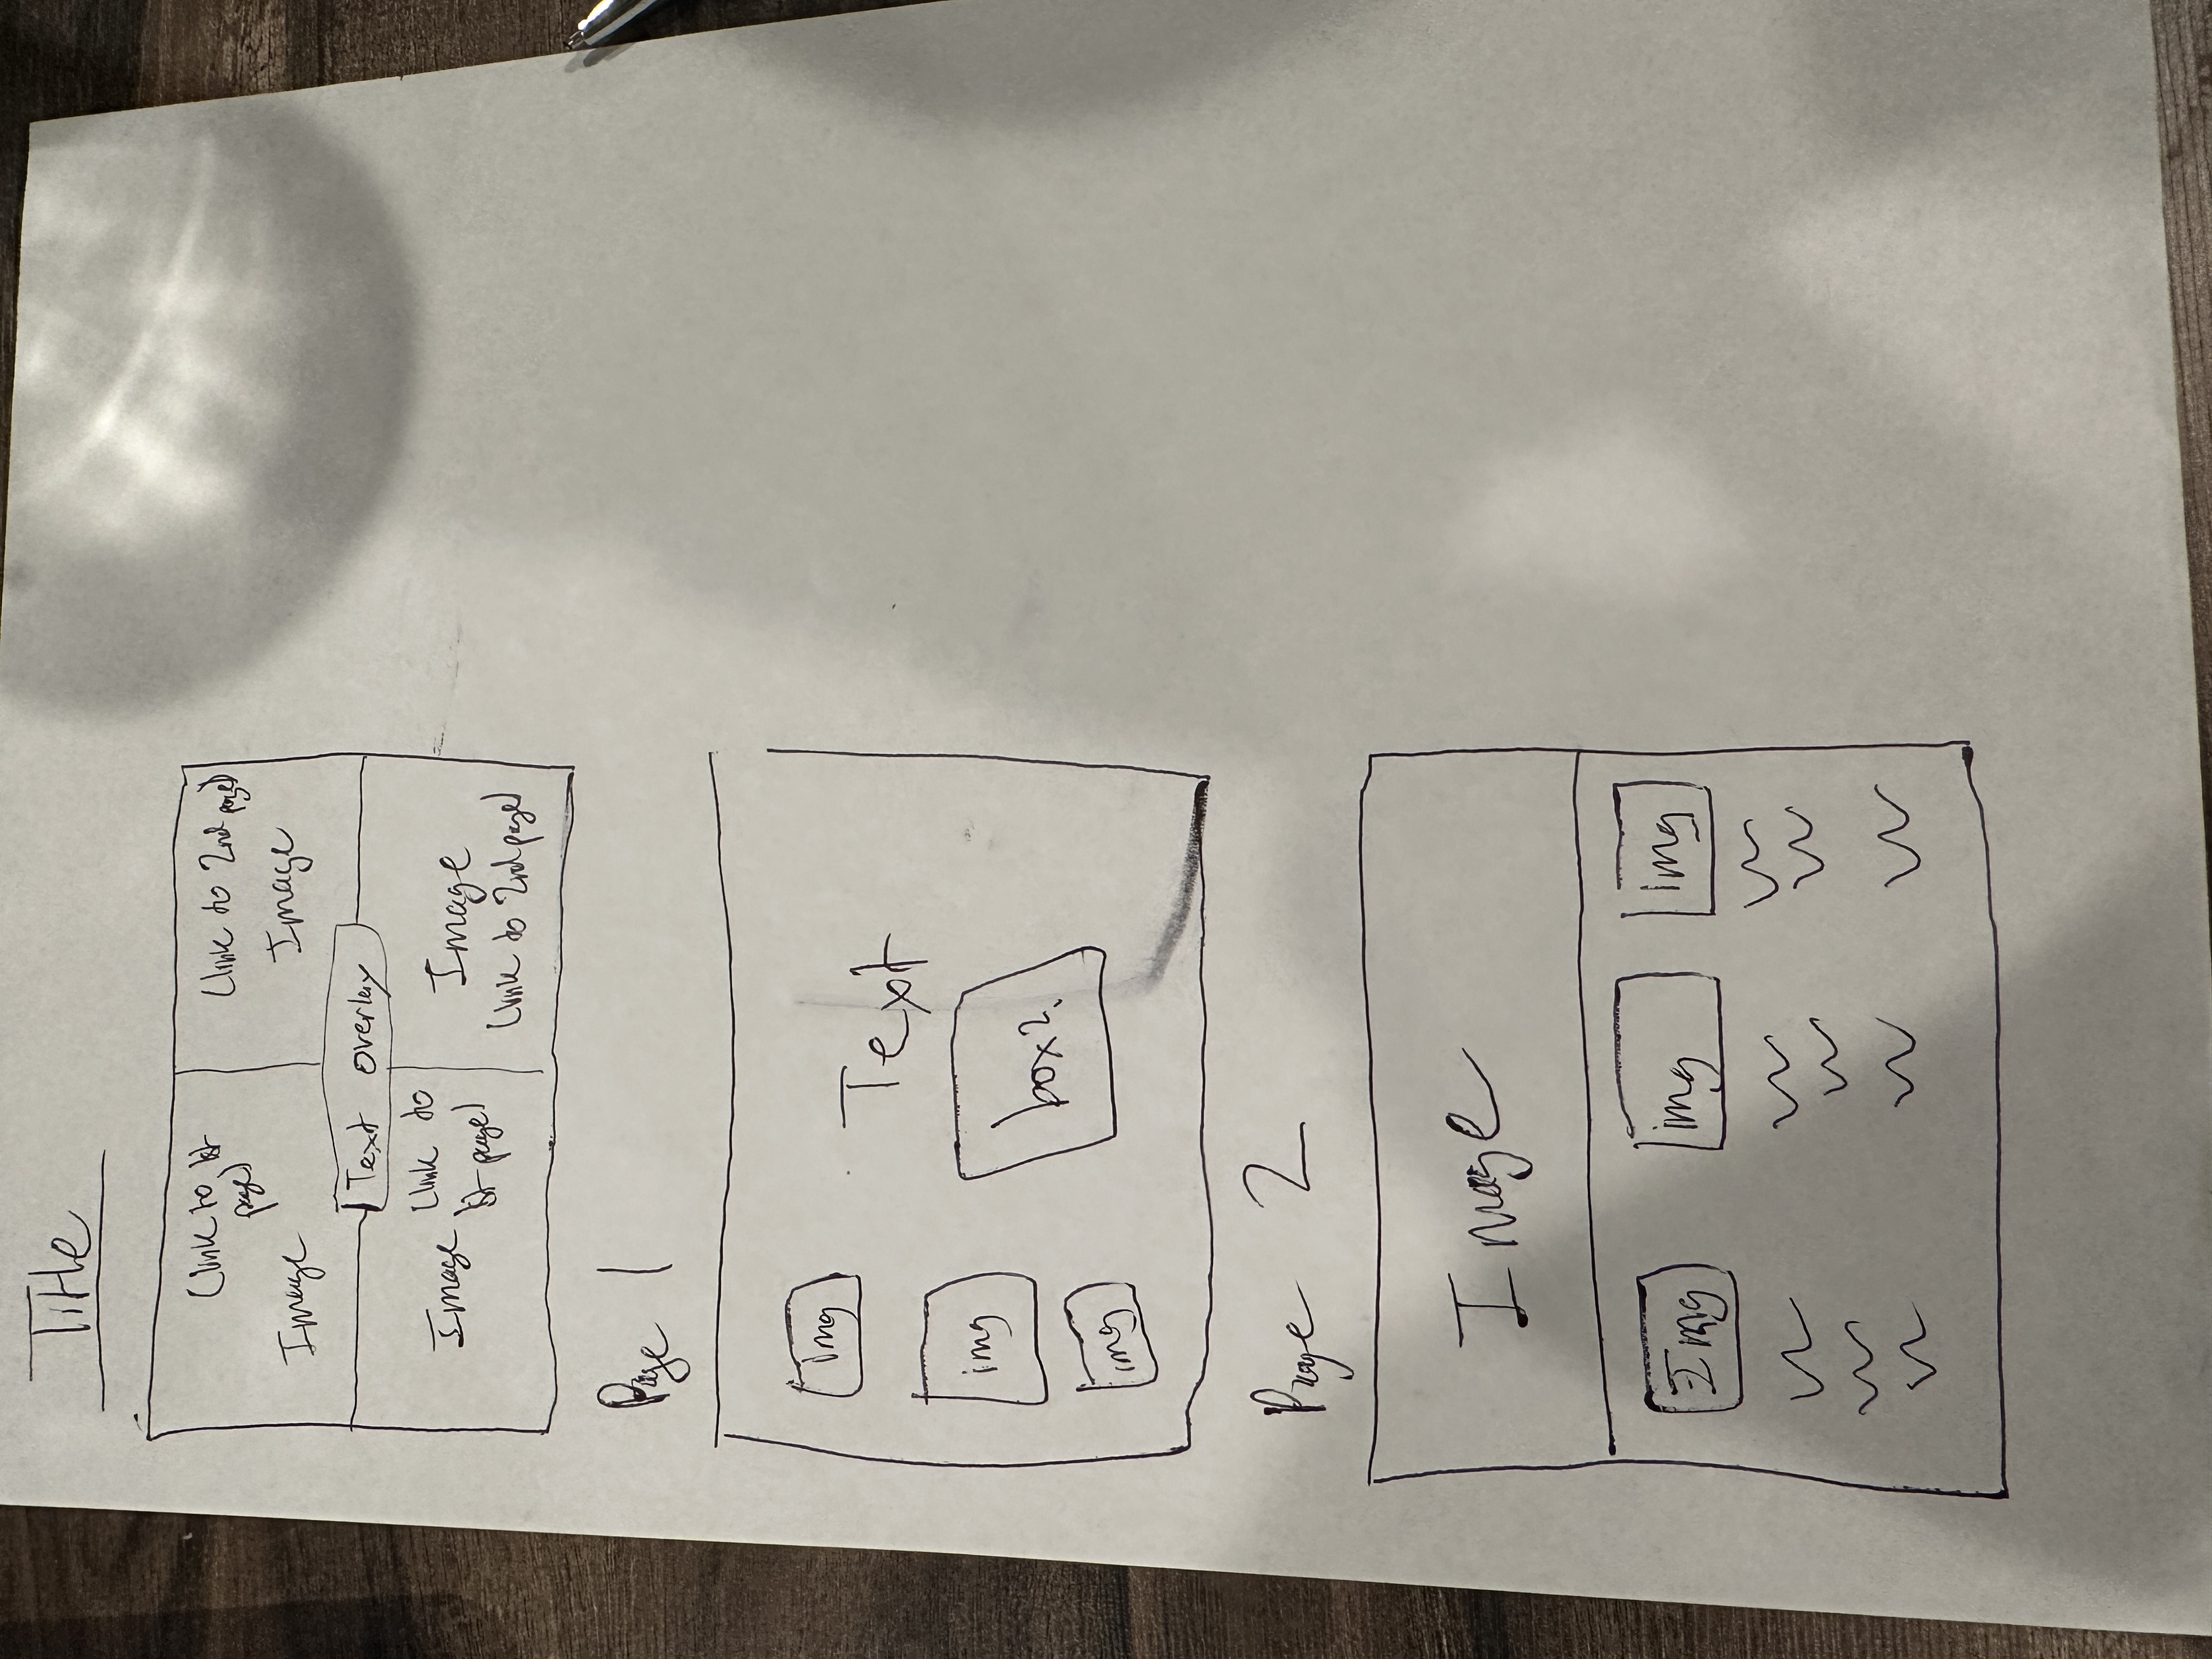 Title
(link to 1st
page)
Image
(link to 2nd page)
Image
Text overlay
Image (link to
1st page)
Image
(link to 2nd page)
Page 1
img
img
img
Text
box?
Page 2
Image
Img
img
img